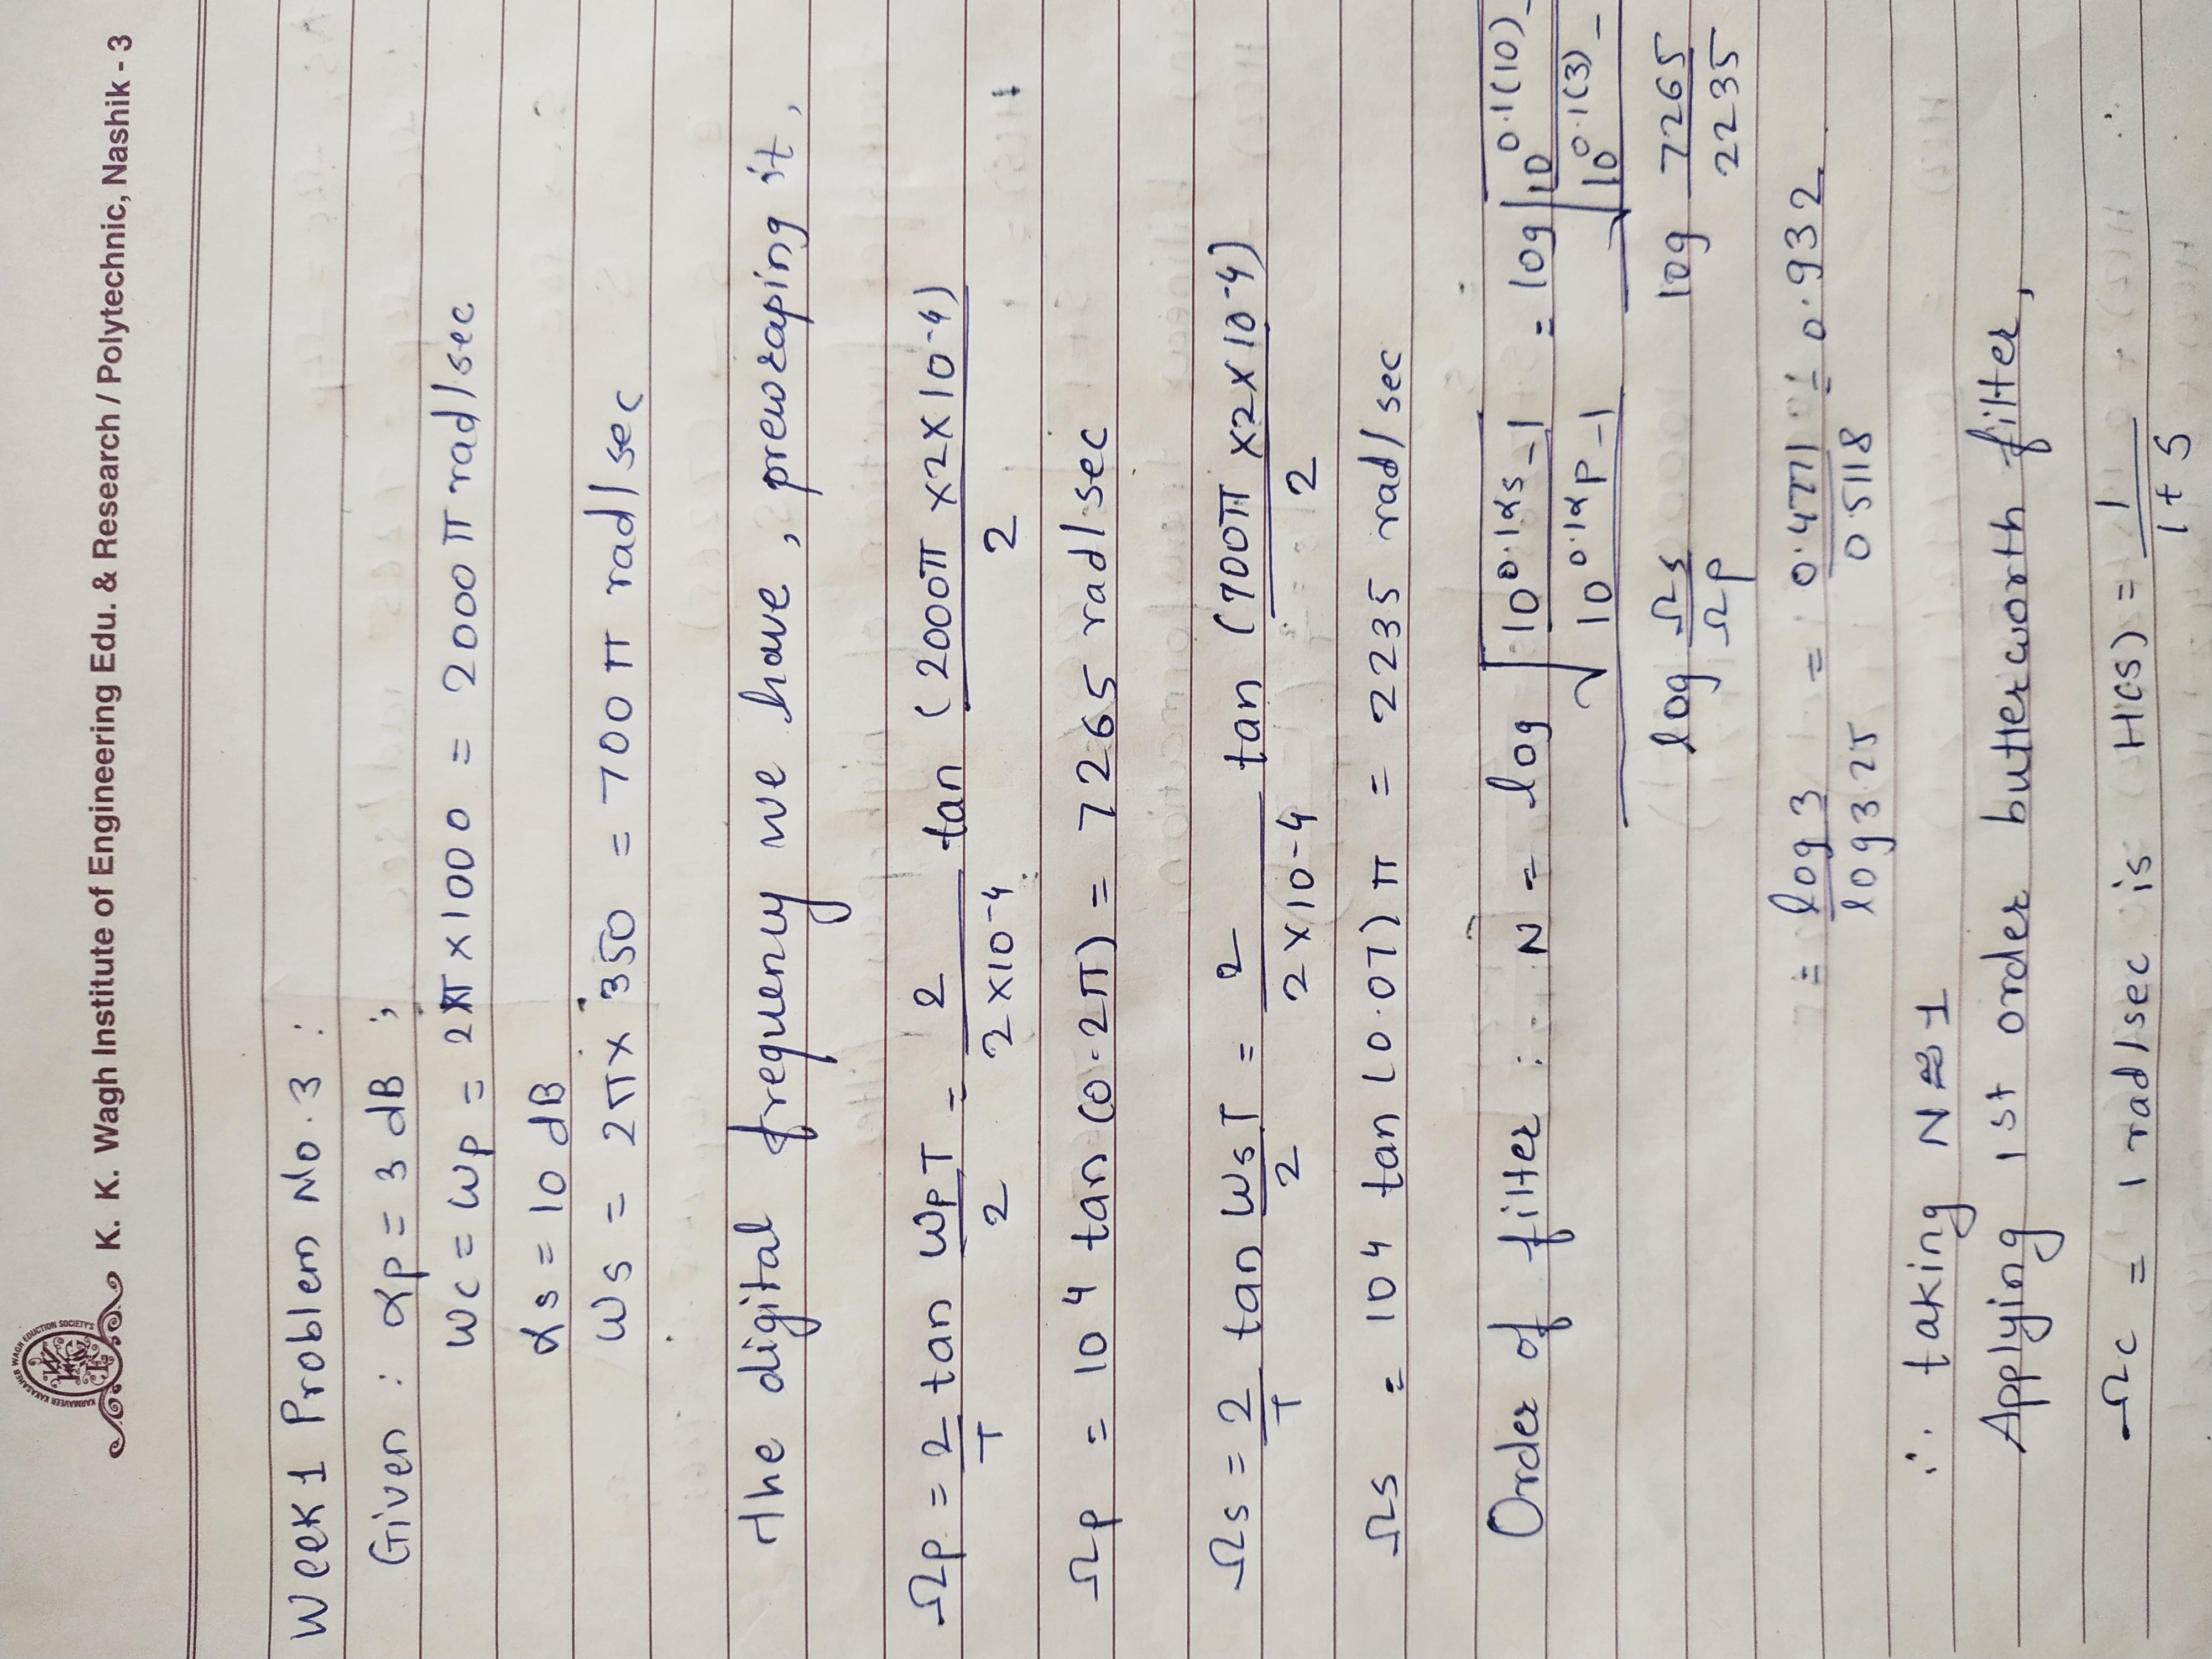 KARMAVEER KAKASAHEB WAGH EDUCTION SOCIETY'S
K. K. Wagh Institute of Engineering Edu. & Research / Polytechnic, Nashik - 3
Week 1 Problem No. 3 :
Given : αp = 3 dB ;
ωc = ωp = 2π × 1000 = 2000 π rad/sec
αs = 10 dB
ωs = 2π × 350 = 700 π rad/sec
The digital frequency we have, prewraping it,
Ωp = 2/T tan ωpT/2 = 2/(2×10^-4) tan (2000π ×2×10^-4)/2
Ωp = 10^4 tan (0.2π) = 7265 rad/sec
Ωs = 2/T tan ωsT/2 = 2/(2×10^-4) tan (700π ×2×10^-4)/2
Ωs = 10^4 tan (0.07) π = 2235 rad/sec
Order of filter : N = log √((10^0.1αs -1)/(10^0.1αp -1)) / log (Ωs/Ωp) = log √((10^0.1(10) -)/(10^0.1(3) -)) / log (7265/2235)
= log 3 / log 3.25 = 0.4771 / 0.5118 = 0.932
∴ taking N ≈ 1
Applying 1st order butterworth filter,
Ωc = 1 rad/sec is H(s) = 1/(1+s)